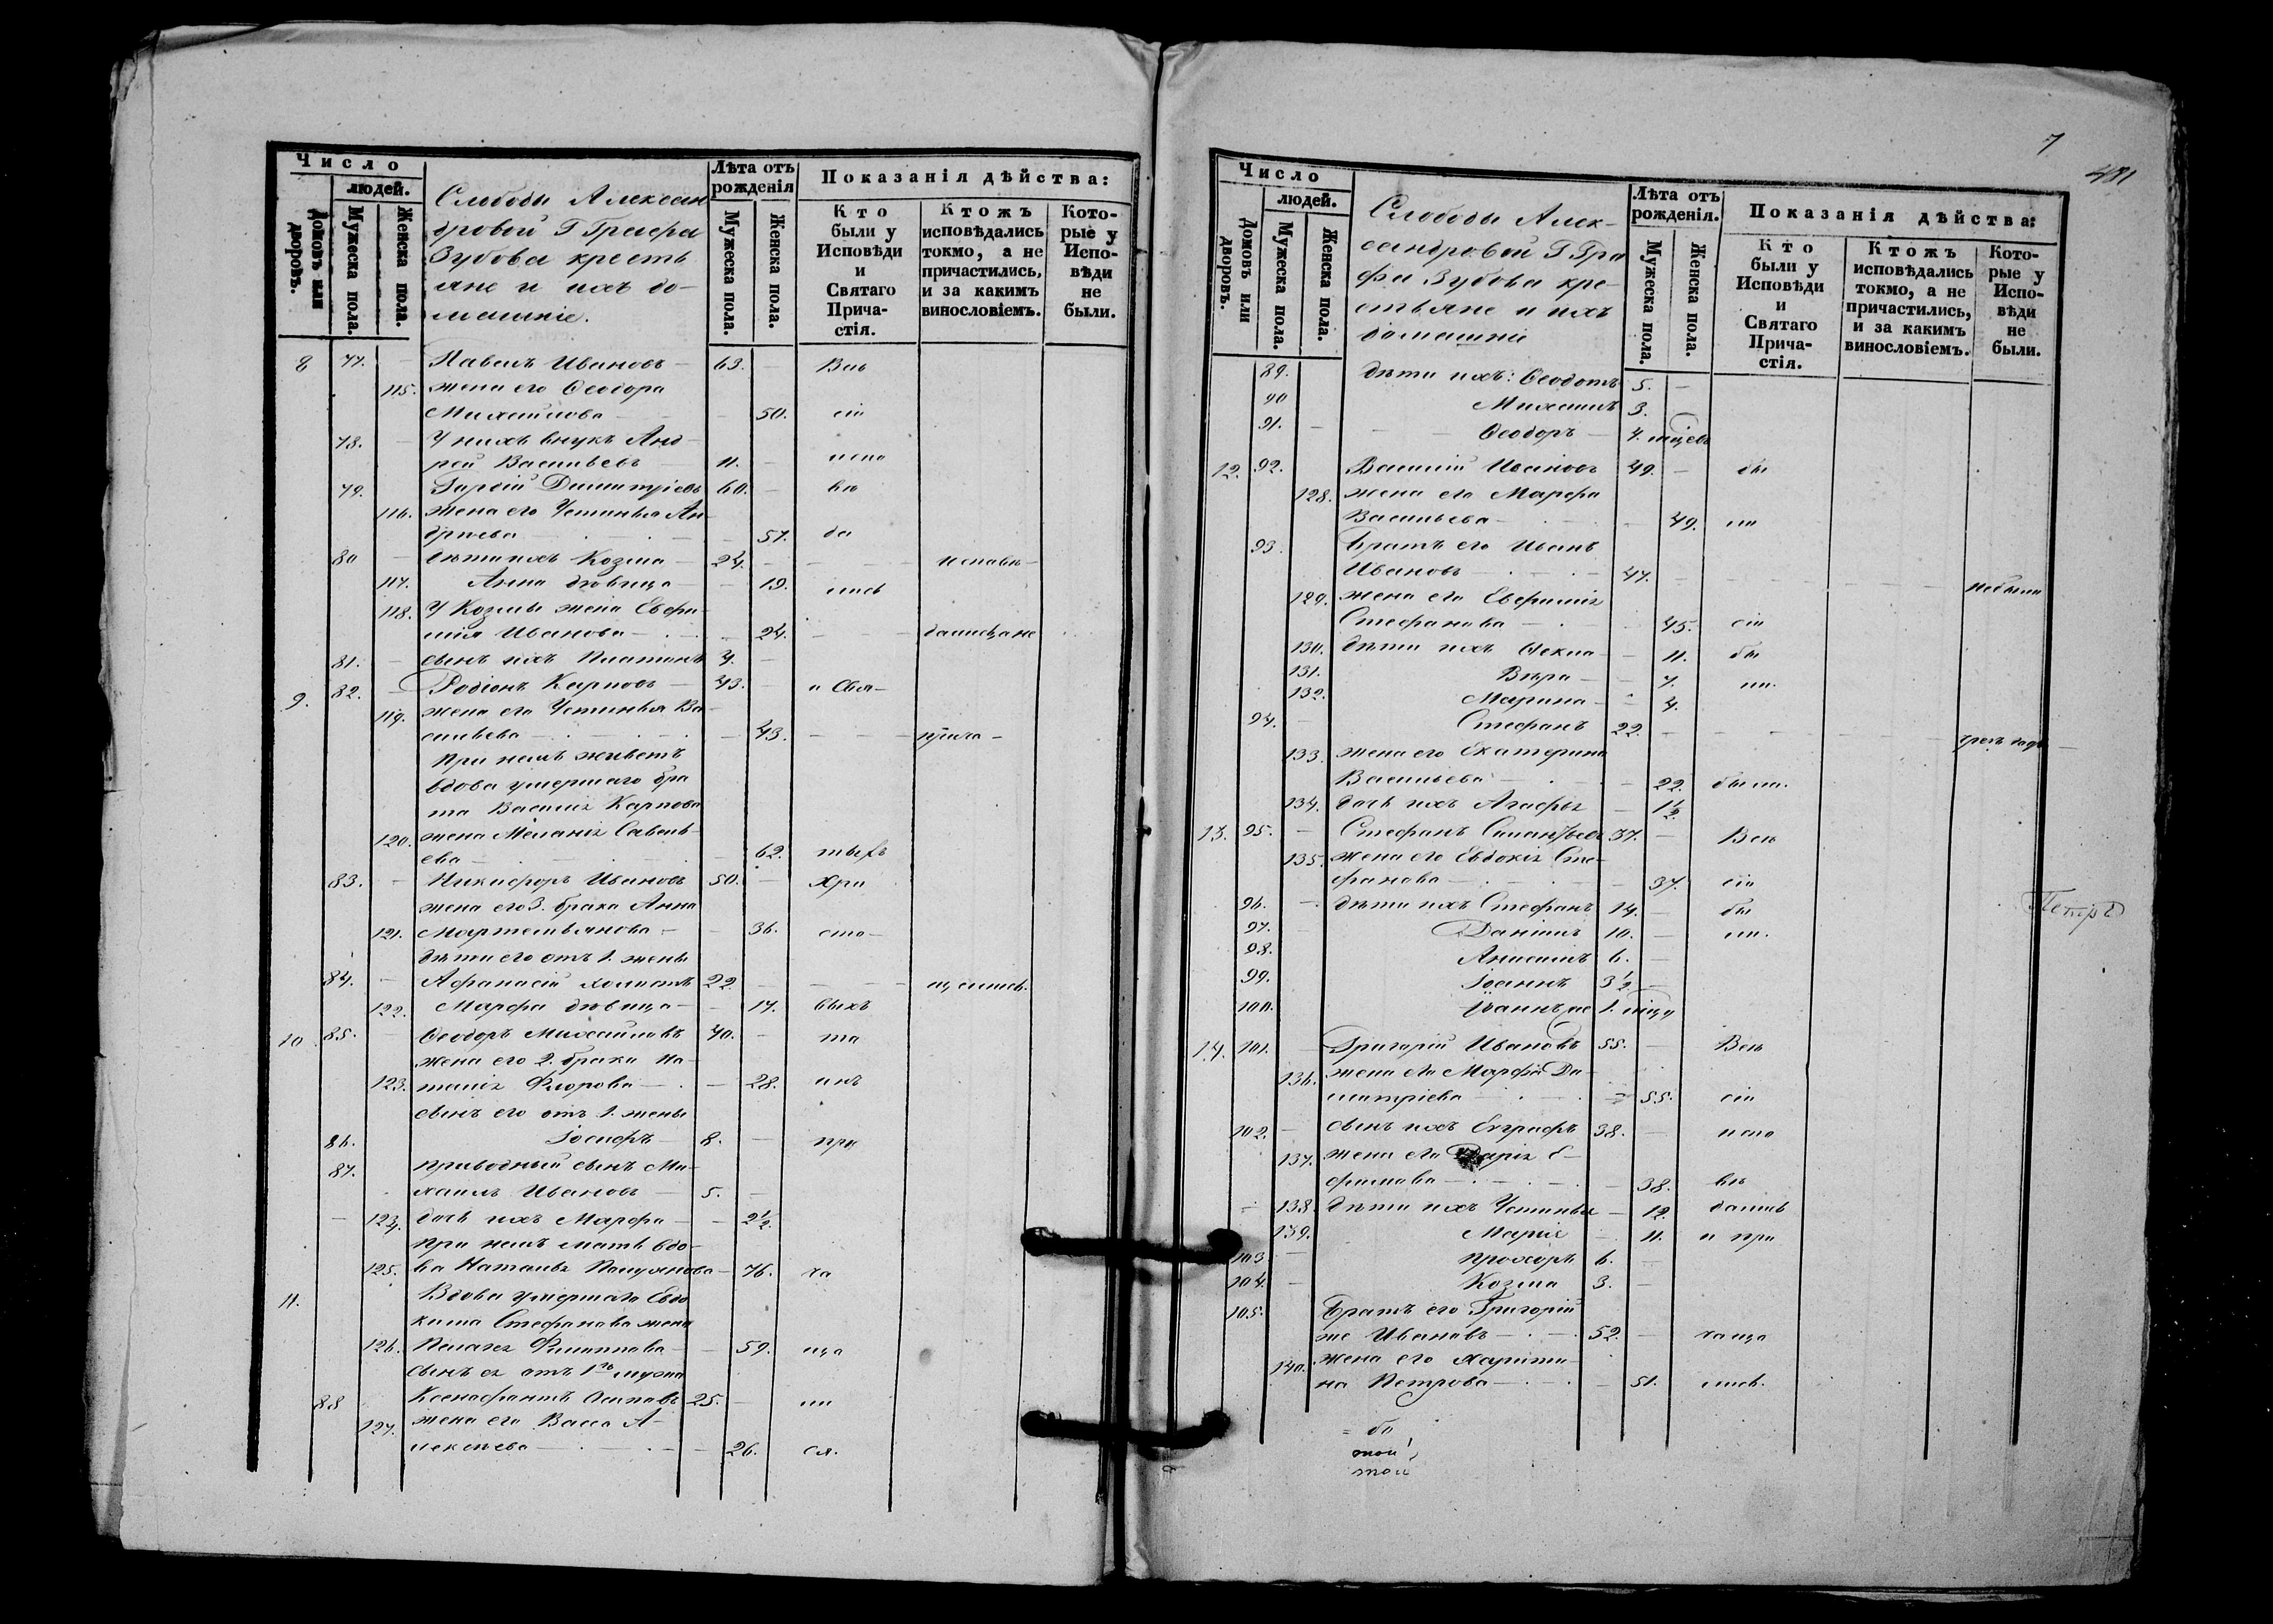 Число
людей.
Домовъ или дворовъ.
Мужеска пола.
Женска пола.
Слободы Алексан
дровой Г Графа
Зубова кресть
яне и ихъ до-
машніе.
Лѣта отъ рожденія
Мужеска пола.
Женска пола.
Показанія дѣйства:
Кто были у Исповѣди и Святаго Прича-стія.
Ктожъ исповѣдались токмо, а не причастились, и за какимъ винословіемъ.
Кото-рые у Испо-вѣди не были.
8 77. — Павелъ Ивановъ — 63. — Всѣ
115. жена его Ѳеодора
Михайлова — 50. сіи
78. — У нихъ внукъ Анд-
рей Васильевъ 11. — испо
79. Гурій Димитріевъ 60. — вѣ
116. жена его Устинья Ан-
дреева — 57. да
80 — дѣти ихъ Козма — 24. — исповѣ-
117. Анна дѣвица — 19. лись
118. У Козмы жена Евфи-
мія Иванова — 24. — дались, а не
81. — сынъ ихъ Платонъ 4. —
9. 82. — Родіонъ Карповъ — 43. — и Свя-
119. жена его Устинья Ва-
сильева — 43. — прича-
При немъ живетъ
вдова умершаго бра
та Василія Карпова
120. жена Меланія Савель-
ева — 62. тыхъ
83. — Никифоръ Ивановъ 50. — Хри
жена его 3. брака Анна
121. Мартемьянова — 36. сто-
дѣти его отъ 1. жены
84. — Афанасій холостъ 22. — щались.
122. Марфа дѣвица — 17. выхъ
10 85. — Ѳеодоръ Михайловъ 40. — та
жена его 2. брака На-
123. талія Флорова — 28. инъ
сынъ его отъ 1. жены
86. Іосифъ — 8. — при
87. приводный сынъ Ми-
хаилъ Ивановъ — 5. —
124. дочь ихъ Марфа — 2½
При немъ мать вдо-
125. ва Наталья — 76. ча
11. Вдова умершаго Евдо
кима Стефанова жена
126. Пелагея Филиппова — 59. ща
сынъ ея отъ 1го мужа
88 Ксенофонтъ Осиповъ 25. — ли
127. жена его Васса А-
лексѣева — 26. ся.
7
481
Число
людей.
Домовъ или дворовъ.
Мужеска пола.
Женска пола.
Слободы Алек-
сандровой Г Гра
фа Зубова кре-
стьяне и ихъ
домашніе
Лѣта отъ рожденія.
Мужеска пола.
Женска пола.
Показанія дѣйства:
Кто были у Исповѣди и Святаго Прича-стія.
Ктожъ исповѣдались токмо, а не причастились, и за какимъ винословіемъ.
Кото-рые у Испо-вѣди не были.
89. дѣти ихъ: Ѳеодотъ 5. —
90 Михаилъ 3.
91. — Ѳеодоръ — 4. мцевъ
12. 92. Василій Ивановъ 49. — бы
128. жена его Марфа
Васильева — 49. ли
93. Братъ его Иванъ
Ивановъ — 47. — небыли
129. жена его Евфимія
Стефанова — 45. сіи
130. дѣти ихъ Ѳекла — 11. бы
131. Вѣра — 7. ли.
132. Марина — 4.
94. — Стефанъ 22. —
133. жена его Екатерина
Васильева — 22. были.
134. дочь ихъ Агафья — 1½
13. 95. — Стефанъ 37. — Всѣ
135. жена его Евдокія Сте-
фанова — 37. сіи
96. — дѣти ихъ Стефанъ 14. — бы
97. — Даніилъ 10. — ли.
98. Анисимъ 6. —
99. Іоаннъ 3½ —
100. Іоаннъ же 1. мца
Петръ
14. 101. — Григорій Ивановъ 55. — Всѣ
136. жена его Марфа Ди-
митріева — 55. сіи
102. — сынъ ихъ Евграфъ 38. — испо
137. жена его Дарія Е-
фимова — 38. вѣ
138. дѣти ихъ Устинья — 12. дались
139. Марія — 11. и при
103 — Прохоръ 6. —
104. — Козма 3. —
105. Братъ его Григорій
же Ивановъ — 52. — чаща
140. жена его Харити-
на Петрова — 51. лись.